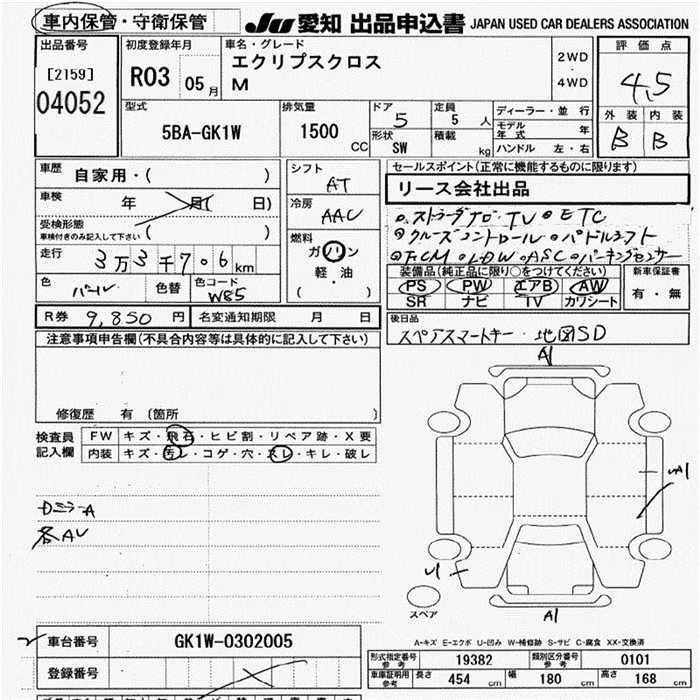 車内保管・守衛保管
JU 愛知 出品申込書 JAPAN USED CAR DEALERS ASSOCIATION
出品番号
[2159]
04052
初度登録年月
R03 05 月
車名・グレード
エクリプスクロス
M
2WD
4WD
評価点
4.5
外装 内装
B B
型式
5BA-GK1W
排気量
1500 CC
ドア 5
形状 SW
定員 5 人
積載 kg
ディーラー・並行
モデル年式 年
ハンドル 左・右
車歴 自家用・( )
車検 年 月( 日)
受検形態
車検付きのみ記入して下さい ( )
走行 3万3千706km
色 パール
色替
色コード W85
シフト
AT
冷房
AAC
燃料
ガソリン
軽・油
( )
セールスポイント(正常に機能するものに限ります)
リース会社出品
ストラーダナビ・TV ETC
クルーズコントロール・パドルシフト
FCM・LDW・ASC・パーキングセンサー
装備品(純正品に限り○をつけてください)
PS PW エアB AW
SR ナビ TV カワシート
新車保証書
有・無
R券 9,850 円
名変通知期限 月 日
後日品
スペアスマートキー・地図SD
注意事項申告欄(不具合内容等は具体的に記入して下さい)
修復歴 有 (箇所 )
検査員記入欄
FW キズ・飛石・ヒビ割・リペア跡・X要
内装 キズ・汚レ・コゲ・穴・スレ・キレ・破レ
Dミラ-A
各AU
A1
A1
スペア
A1
車台番号
GK1W-0302005
登録番号
A-キズ E-エクボ U-凹み W-補修跡 S-サビ C-腐食 XX-交換済
形式指定番号 参考 19382
類別区分番号 参考 0101
車庫証明用 参考 長さ 454 cm 幅 180 cm 高さ 168 cm